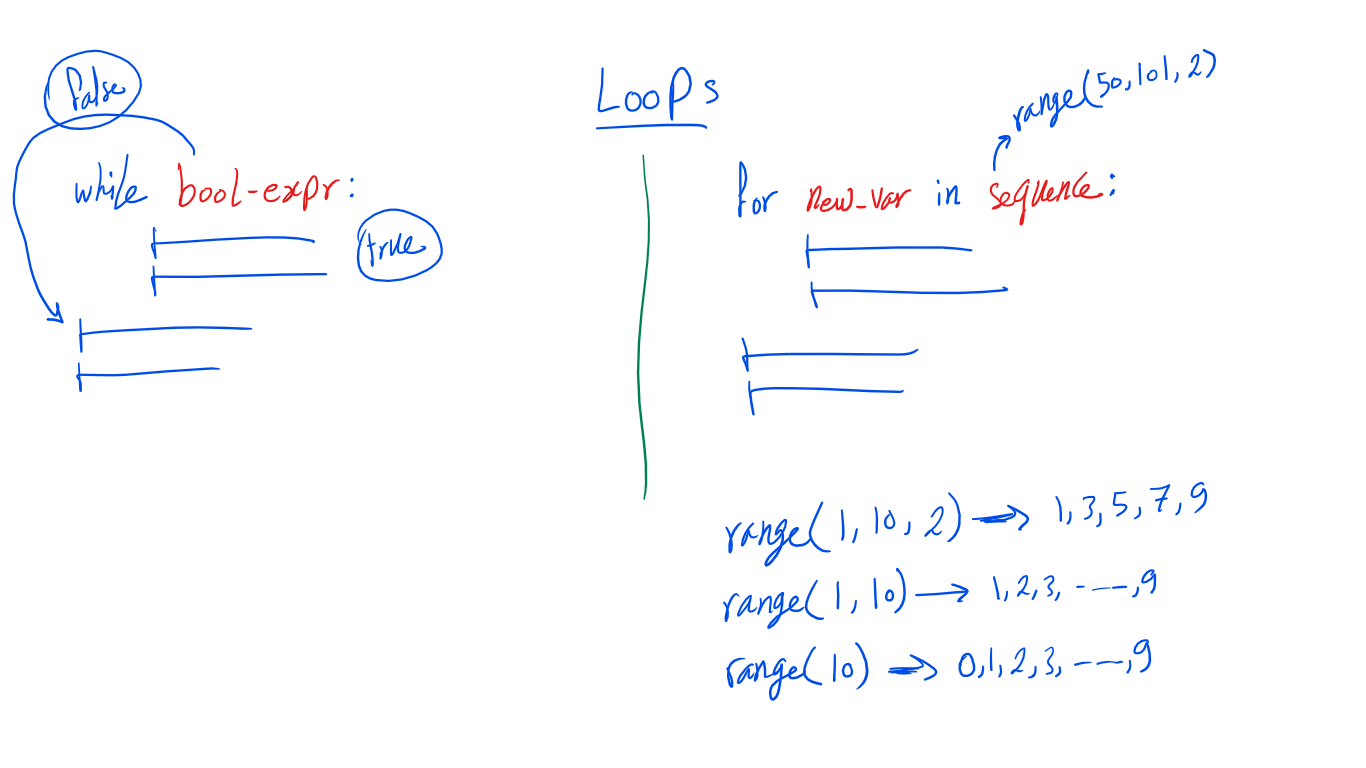 Loops
false
while bool-expr:
true
range(50,101,2)
for new_var in sequence:
range(1,10,2) → 1,3,5,7,9
range(1,10) → 1,2,3,-----,9
range(10) → 0,1,2,3,-----,9